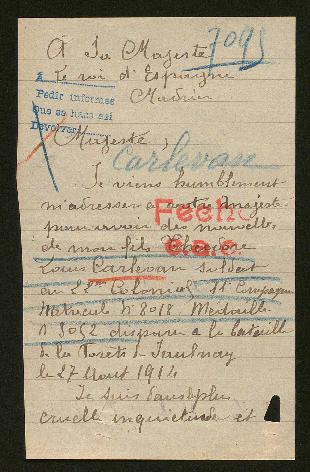 A Sa Majesté
7095
Le roi d'Espagne
Madrid
Pedir informes
Que se haga así
Devolver
Majesté,
Carlevan
Je viens humblement
m'adresser a votre Majesté
pour avoir des nouvelles
Fecho
de mon fils Theodore
e.a.c.
Louis Carlevan soldat
au 22me Colonial 11e Compagnie
Matricule N° 8018 Medaille
N 8052 disparu a la bataille
de la Forets de Jaulnay
le 27 Aout 1914
Je suis dans la plus
cruelle inquietude et